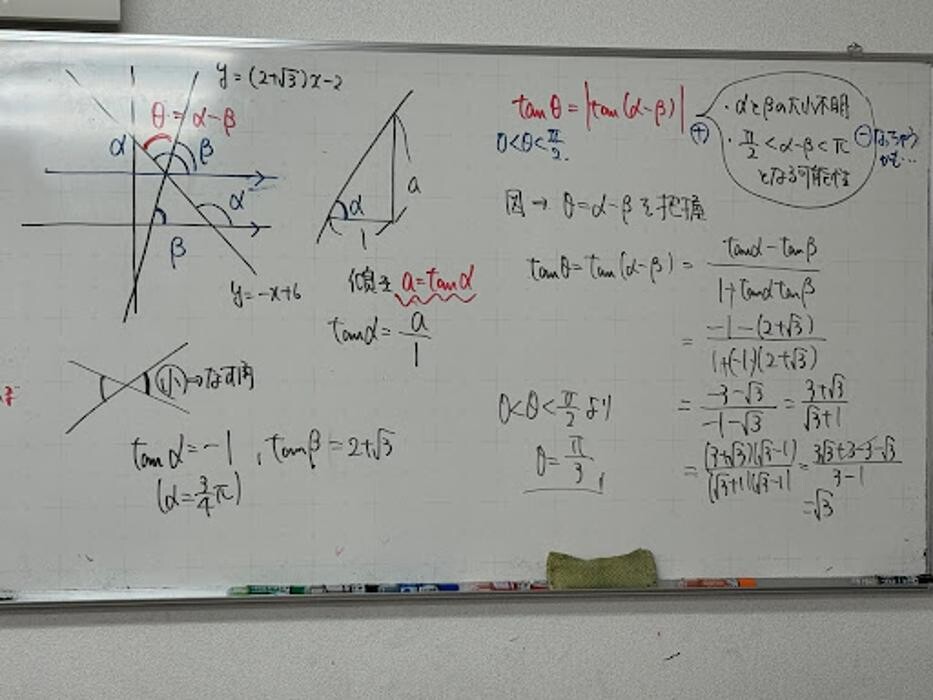 y=(2+√3)x-2
θ=α-β
α
β
α
β
y=-x+6
α
a
1
傾き a=tanα
tanα=a/1
小→なす角
tanα=-1, tanβ=2+√3
(α=3/4π)
tanθ=|tan(α-β)|
0<θ<π/2.
+
・αとβの大小不明
・π/2<α-β<π
となる可能性
-なっちゃうかも…
図→θ=α-βを把握
tanθ=tan(α-β)=(tanα-tanβ)/(1+tanαtanβ)
=(-1-(2+√3))/(1+(-1)(2+√3))
=(-3-√3)/(-1-√3)=(3+√3)/(√3+1)
=((3+√3)(√3-1))/((√3+1)(√3-1))=(3√3+3-3-√3)/(3-1)
=√3
0<θ<π/2より
θ=π/3